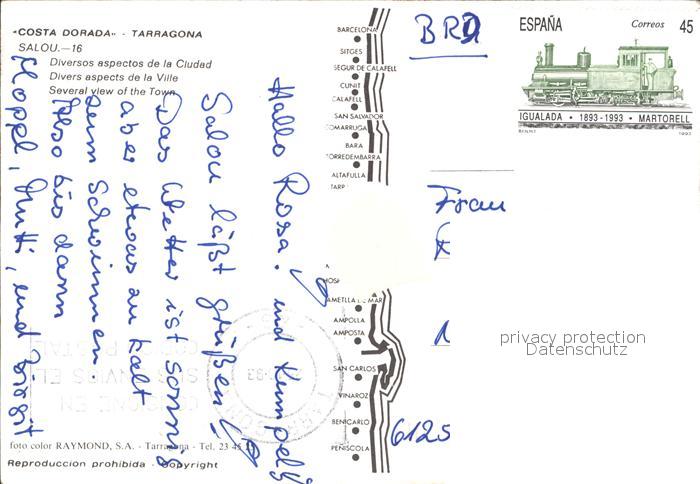 «COSTA DORADA» - TARRAGONA
SALOU.—16
Diversos aspectos de la Ciudad
Divers aspects de la Ville
Several view of the Town
Hallo Rosa. und
Salou läßt grüßen!
Das Wetter ist sonnig
aber etwas zu kalt
zum Schwimmen.
Also bis dann
Hoppl, Mutti, und Birgit
foto color RAYMOND, S.A. - Tarragona - Tel. 23 45
Reproduccion prohibida - Copyright
BARCELONA
SITGES
SEGUR DE CALAFELL
CUNIT
CALAFELL
SAN SALVADOR
COMARRUGA
BARA
TORREDEMBARRA
ALTAFULLA
TARR
HOSP
AMETLLA DE MAR
AMPOLLA
AMPOSTA
SAN CARLOS
VINAROZ
BENICARLO
PEÑISCOLA
BRD
ESPAÑA Correos 45
IGUALADA • 1893-1993 • MARTORELL
1993
Frau
6125
privacy protection
Datenschutz